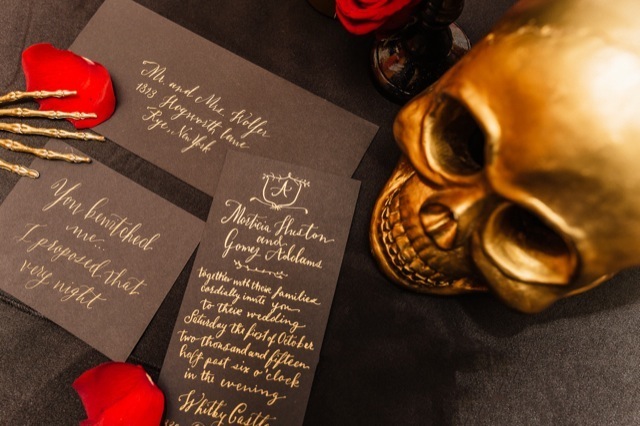 Mr. and Mrs. Wolfer
1323 Hogworth lane
Rye, New York
You bewitched
me...
I proposed that
very night
A
Morticia Huston
and
Gomez Addams
together with their families
cordially invite you
to their wedding
Saturday the first of October
two thousand and fifteen
half past six o'clock
in the evening
Whitby Castle